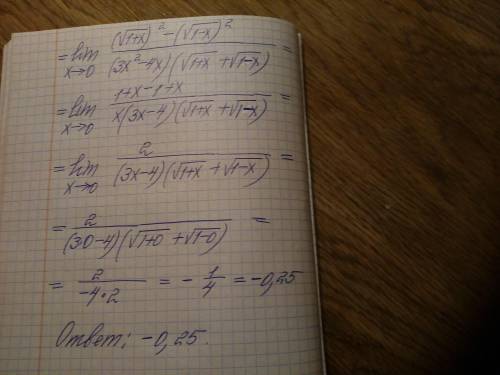 = lim x→0 ((√1+x)² − (√1−x)²) / ((3x²−4x)(√1+x + √1−x)) =
= lim x→0 (1+x−1+x) / (x(3x−4)(√1+x + √1−x)) =
= lim x→0 2 / ((3x−4)(√1+x + √1−x)) =
= 2 / ((3·0−4)(√1+0 + √1−0)) =
= 2 / (−4·2) = − 1/4 = −0,25
Ответ: −0,25.